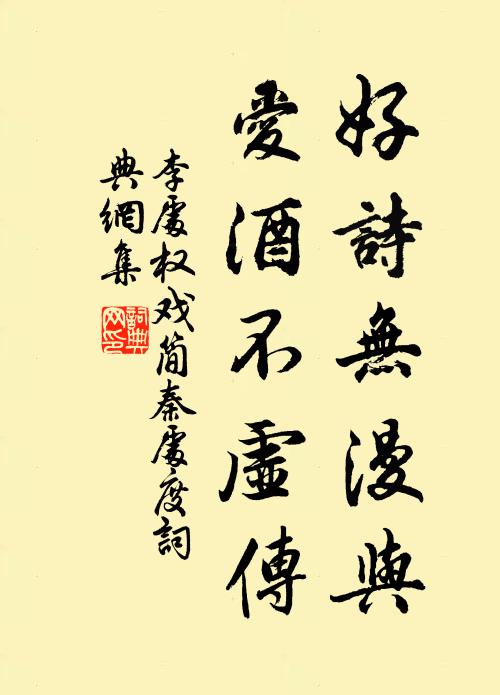 好詩無漫與
愛酒不虛傳
李處权戏简秦處度詞
典網集
詞典網印